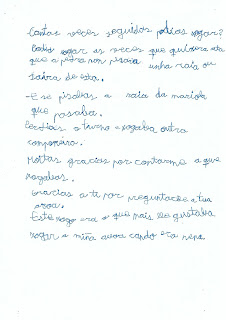 Cantas veces seguidas podias xogar?
Podia xogar as veces que quixera ata
que a pedra non pisaia unha raia ou
saira de esta.
-E se pisabas a raia da mariola
que pasaba.
Perdias o turno e xogaba outro
compañeiro.
Moitas gracias por contarme a que
xogabas.
Gracias a ti por preguntarlle a tua
avoa.
Este xogo era o que mais lle gustaba
xogar a miña avoa cando era nena.